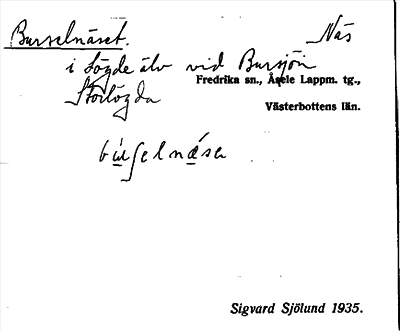 Burselnäset. Näs
i Lögde älv vid Bursjön
Fredrika sn., Åsele Lappm. tg.,
Storlögda
Västerbottens län.
Sigvard Sjölund 1935.